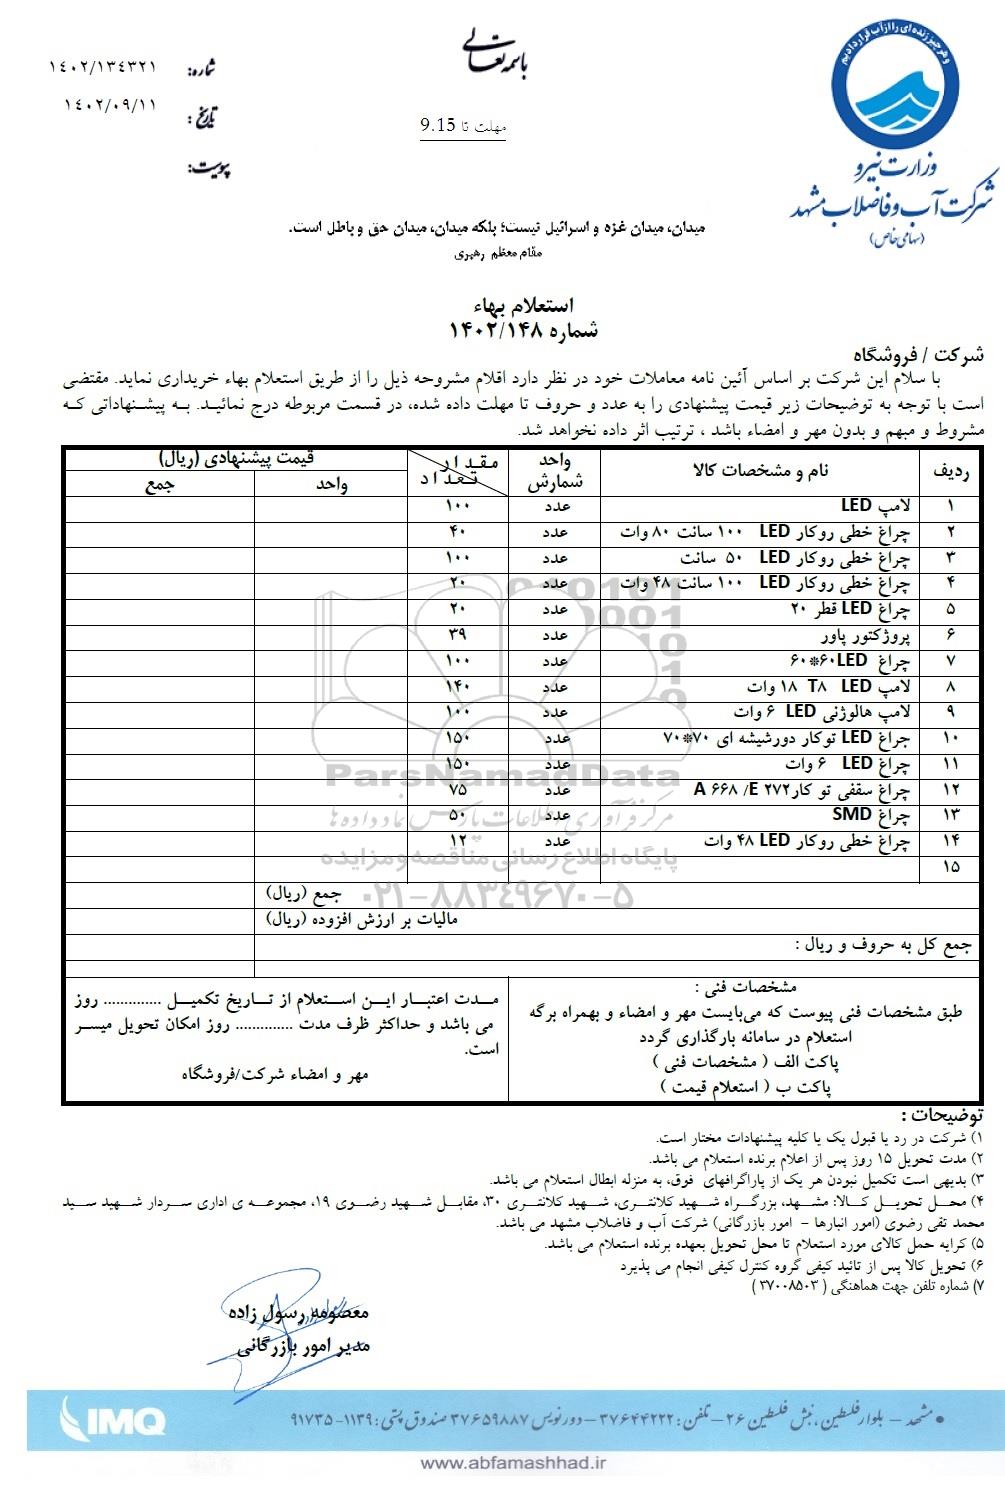 باسمه تعالی
شماره: ۱٤۰۲/۱۳٤۳۲۱
تاریخ: ۱٤۰۲/۰۹/۱۱
پیوست:
مهلت تا 9.15
و هر چیز زنده ای را از آب قرار دادیم
وزارت نیرو
شرکت آب و فاضلاب مشهد
(سهامی خاص)
میدان، میدان غزه و اسرائیل نیست؛ بلکه میدان، میدان حق و باطل است.
مقام معظم رهبری
استعلام بهاء
شماره ۱۴۰۲/۱۴۸
شرکت / فروشگاه
با سلام این شرکت بر اساس آئین نامه معاملات خود در نظر دارد اقلام مشروحه ذیل را از طریق استعلام بهاء خریداری نماید. مقتضی
است با توجه به توضیحات زیر قیمت پیشنهادی را به عدد و حروف تا مهلت داده شده، در قسمت مربوطه درج نمائید. به پیشنهاداتی که
مشروط و مبهم و بدون مهر و امضاء باشد ، ترتیب اثر داده نخواهد شد.
ردیف نام و مشخصات کالا واحد شمارش مقدار تعداد قیمت پیشنهادی (ریال)
واحد جمع
۱ لامپ LED عدد ۱۰۰
۲ چراغ خطی روکار LED ۱۰۰ سانت ۸۰ وات عدد ۴۰
۳ چراغ خطی روکار LED ۵۰ سانت عدد ۱۰۰
۴ چراغ خطی روکار LED ۱۰۰ سانت ۴۸ وات عدد ۲۰
۵ چراغ LED قطر ۲۰ عدد ۲۰
۶ پروژکتور پاور عدد ۳۹
۷ چراغ ۶۰*۶۰LED عدد ۱۰۰
۸ لامپ LED T۸ ۱۸ وات عدد ۱۴۰
۹ لامپ هالوژنی LED ۶ وات عدد ۱۰۰
۱۰ چراغ LED توکار دورشیشه ای ۷۰*۷۰ عدد ۱۵۰
۱۱ چراغ LED ۶ وات عدد ۱۵۰
۱۲ چراغ سقفی تو کار A ۶۶۸ /E ۲۷۲ عدد ۷۵
۱۳ چراغ SMD عدد ۵۰
۱۴ چراغ خطی روکار LED ۴۸ وات عدد ۱۲
۱۵
جمع (ریال)
مالیات بر ارزش افزوده (ریال)
جمع کل به حروف و ریال :
مشخصات فنی :
طبق مشخصات فنی پیوست که می‌بایست مهر و امضاء و بهمراه برگه
استعلام در سامانه بارگذاری گردد
پاکت الف ( مشخصات فنی )
پاکت ب ( استعلام قیمت )
مدت اعتبار این استعلام از تاریخ تکمیل .............. روز
می باشد و حداکثر ظرف مدت .............. روز امکان تحویل میسر
است.
مهر و امضاء شرکت/فروشگاه
ParsNamadData
مرکز فرآوری اطلاعات پارس نماد داده ها
پایگاه اطلاع رسانی مناقصه و مزایده
۰۲۱-۸۸۳۴۹۶۷۰-۵
توضیحات :
۱) شرکت در رد یا قبول یک یا کلیه پیشنهادات مختار است.
۲) مدت تحویل ۱۵ روز پس از اعلام برنده استعلام می باشد.
۳) بدیهی است تکمیل نبودن هر یک از پاراگرافهای فوق، به منزله ابطال استعلام می باشد.
۴) محل تحویل کالا: مشهد، بزرگراه شهید کلانتری، شهید کلانتری ۳۰، مقابل شهید رضوی ۱۹، مجموعه ی اداری سردار شهید سید
محمد تقی رضوی (امور انبارها - امور بازرگانی) شرکت آب و فاضلاب مشهد می باشد.
۵) کرایه حمل کالای مورد استعلام تا محل تحویل بعهده برنده استعلام می باشد.
۶) تحویل کالا پس از تائید کیفی گروه کنترل کیفی انجام می پذیرد
۷) شماره تلفن جهت هماهنگی ( ۳۷۰۰۸۵۰۳ )
معصومه رسول زاده
مدیر امور بازرگانی
• مشهد - بلوار فلسطین ، نبش فلسطین ۲۶ - تلفن : ۳۷۶۴۴۲۲۲ - دورنویس ۳۷۶۵۹۸۸۷ صندوق پستی : ۱۱۳۹-۹۱۷۳۵
IMQ
www.abfamashhad.ir